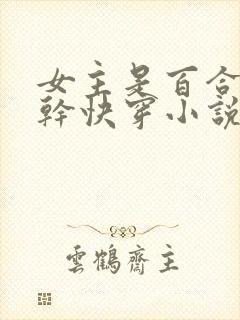 女主是百合
幹快穿小說
雲鶴齋主